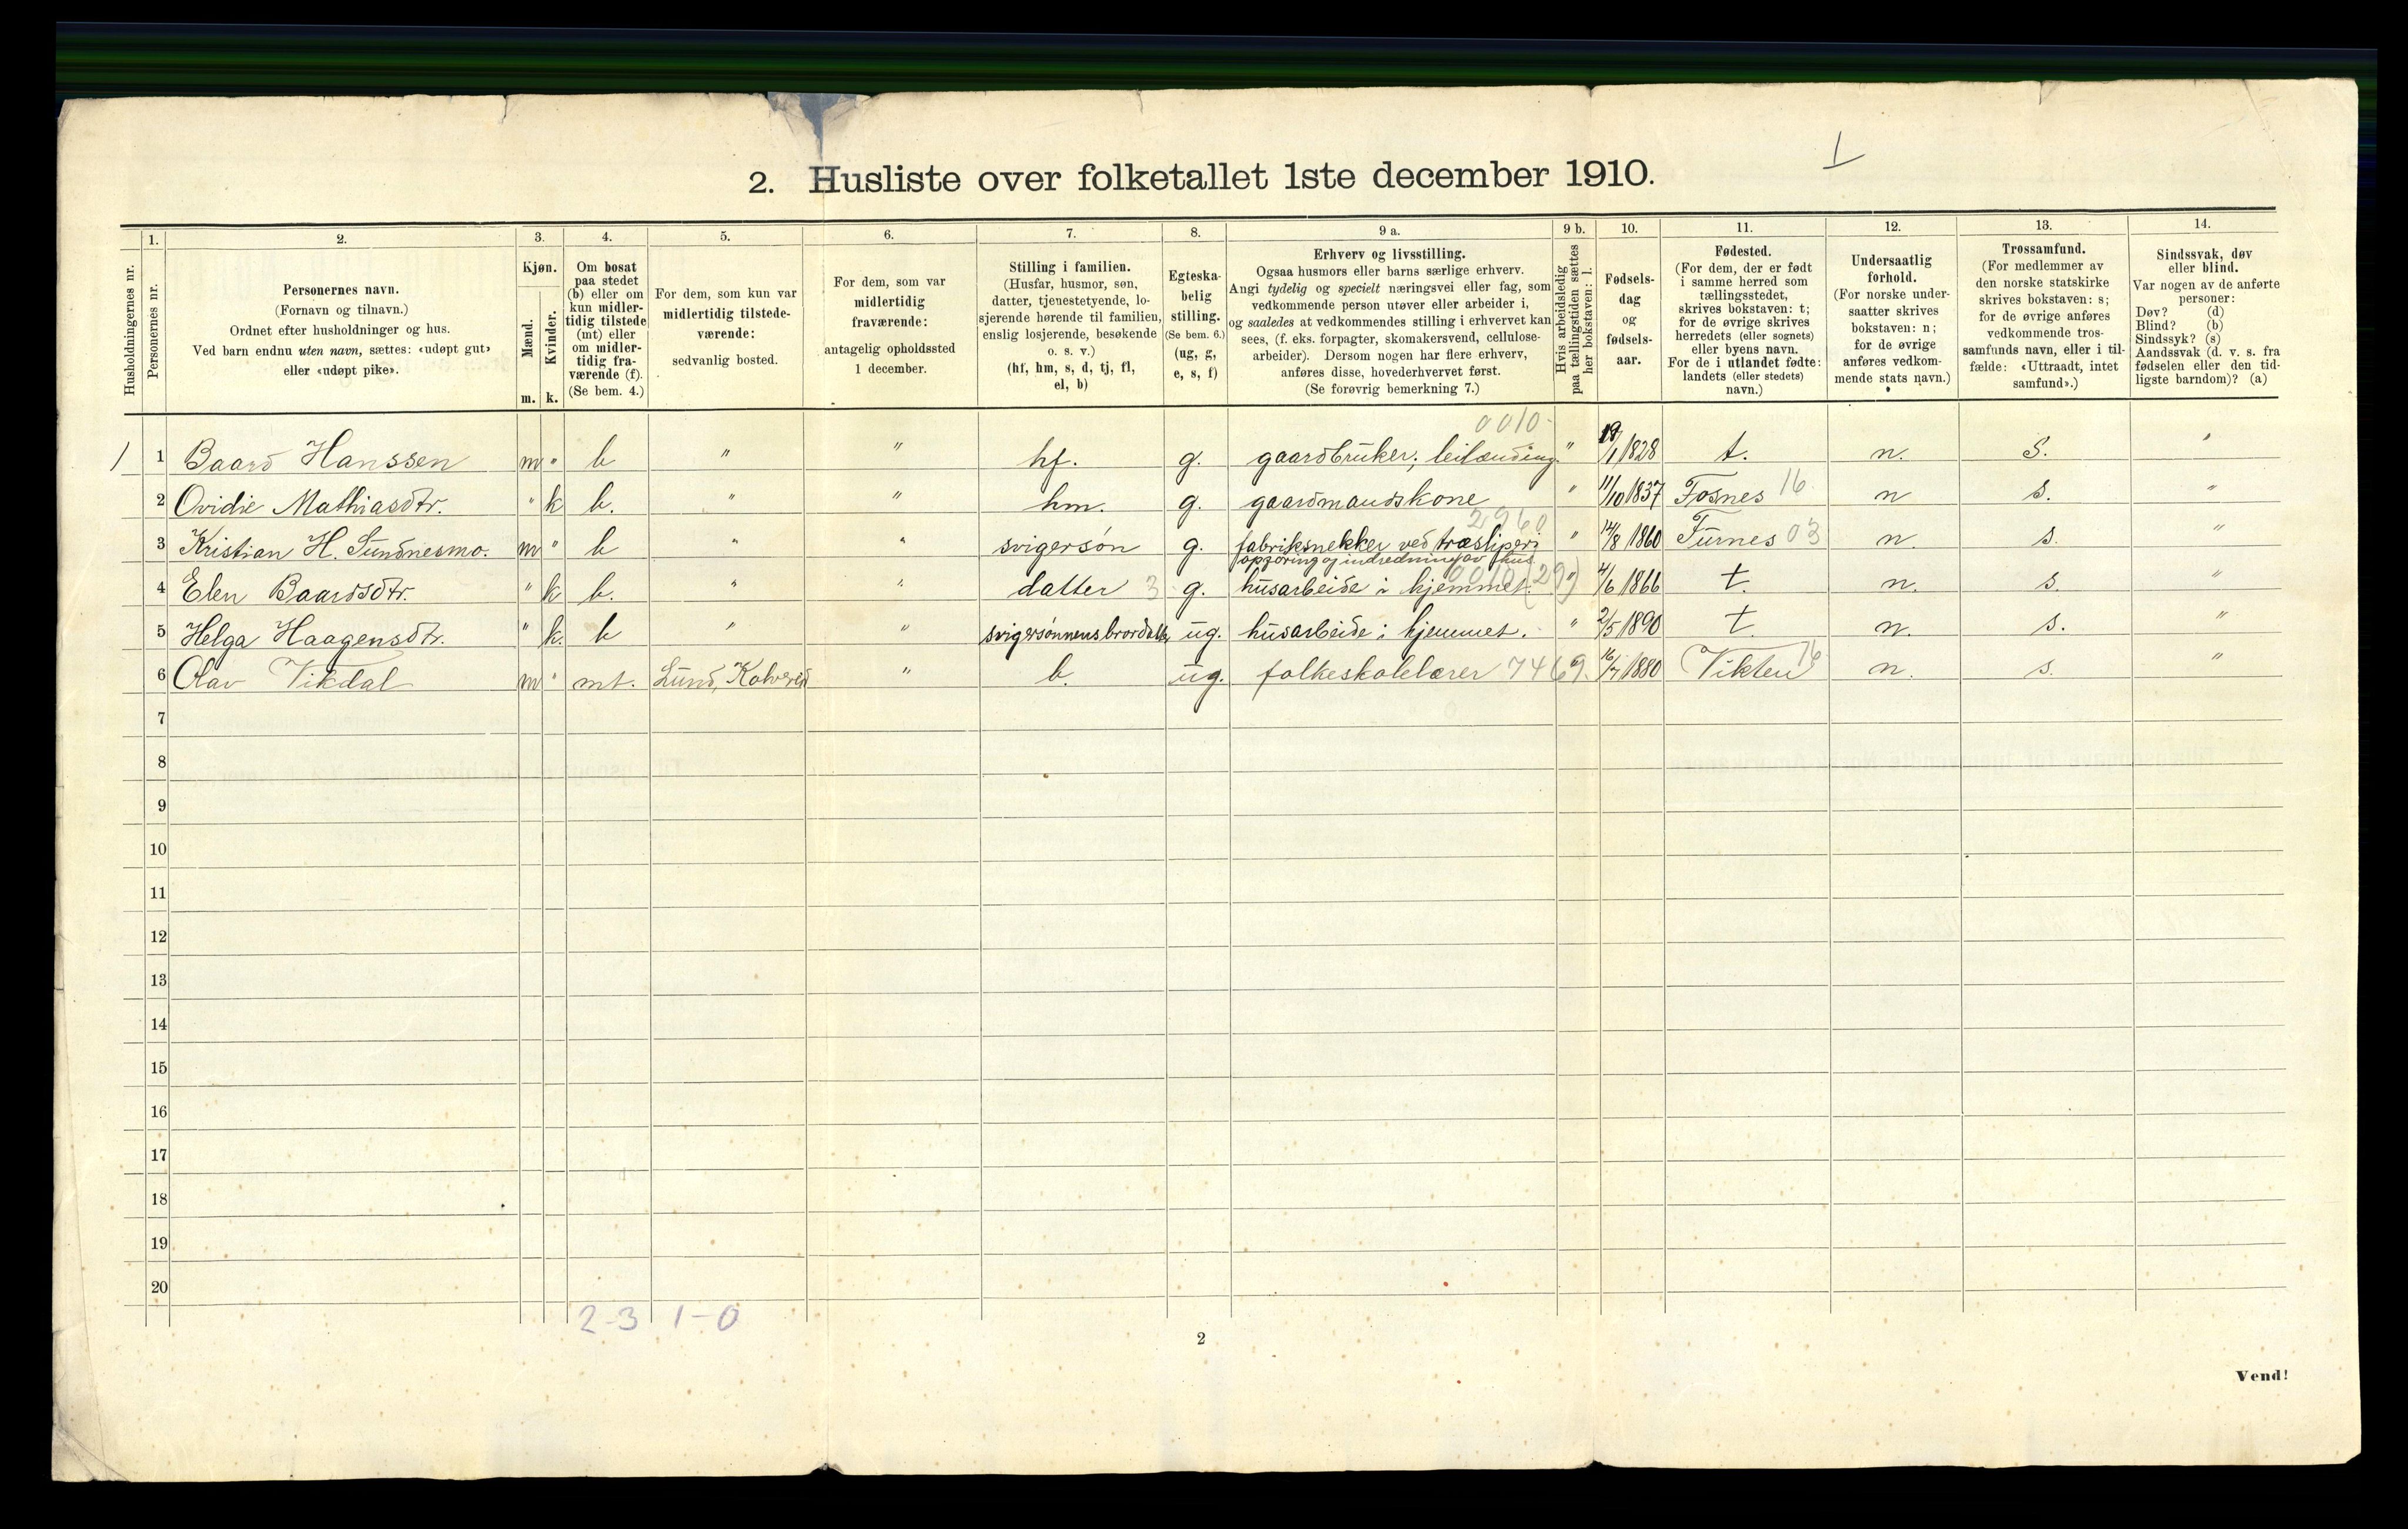 1
2. Husliste over folketallet 1ste december 1910.
Husholdningernes nr.
1.
Personernes nr.
2.
Personernes navn.
(Fornavn og tilnavn.)
Ordnet efter husholdninger og hus.
Ved barn endnu uten navn, sættes: «udøpt gut»
eller «udøpt pike».
3.
Kjøn.
Mænd.
Kvinder.
m. k.
4.
Om bosat
paa stedet
(b) eller om
kun midler-
tidig tilstede
(mt) eller
om midler-
tidig fra-
værende (f).
(Se bem. 4.)
5.
For dem, som kun var
midlertidig tilstede-
værende:
sedvanlig bosted.
6.
For dem, som var
midlertidig
fraværende:
antagelig opholdssted
1 december.
7.
Stilling i familien.
(Husfar, husmor, søn,
datter, tjenestetyende, lo-
sjerende hørende til familien,
enslig losjerende, besøkende
o. s. v.)
(hf, hm, s, d, tj, fl,
el, b)
8.
Egteska-
belig
stilling.
(Se bem. 6.)
(ug, g,
e, s, f)
9 a.
Erhverv og livsstilling.
Ogsaa husmors eller barns særlige erhverv.
Angi tydelig og specielt næringsvei eller fag, som
vedkommende person utøver eller arbeider i,
og saaledes at vedkommendes stilling i erhvervet kan
sees, (f. eks. forpagter, skomakersvend, cellulose-
arbeider). Dersom nogen har flere erhverv,
anføres disse, hovederhvervet først.
(Se forøvrig bemerkning 7.)
9 b.
Hvis arbeidsledig
paa tællingstiden sættes
her bokstaven: l.
10.
Fødsels-
dag
og
fødsels-
aar.
11.
Fødested.
(For dem, der er født
i samme herred som
tællingsstedet,
skrives bokstaven: t;
for de øvrige skrives
herredets (eller sognets)
eller byens navn.
For de i utlandet fødte:
landets (eller stedets)
navn.)
12.
Undersaatlig
forhold.
(For norske under-
saatter skrives
bokstaven: n;
for de øvrige
anføres vedkom-
mende stats navn.)
13.
Trossamfund.
(For medlemmer av
den norske statskirke
skrives bokstaven: s;
for de øvrige anføres
vedkommende tros-
samfunds navn, eller i til-
fælde: «Uttraadt, intet
samfund».)
14.
Sindssvak, døv
eller blind.
Var nogen av de anførte
personer:
Døv? (d)
Blind? (b)
Sindssyk? (s)
Aandssvak (d. v. s. fra
fødselen eller den tid-
ligste barndom)? (a)
0010
1 1 Baard Hanssen m " b " " hf. g. gaardbruker, leilænding. " 19/1 1828 t. n. s. "
2 Ovidie Mathiasdtr. " k b. " " hm. g. gaardmandskone " 11/10 1837 Fosnes 16 n s. "
2960
3 Kristian H. Sundnesmo. m " b " " svigersøn g. fabriksnekker ved træsliperi " 14/8 1860 Furnes 03 n. s. "
opføring og indredning av hus
4 Elen Baardsdtr. " k b. " " datter 3 g. husarbeide i hjemmet. 0010 (29) " 4/6 1866 t. n. s. "
5 Helga Haagensdtr. " k. b " " svigersønnens brordatter ug. husarbeide i hjemmet. " 2/5 1890 t n. s. "
6 Olav Vikdal m " mt. Lund, Kolvereid " b. ug. folkeskolelærer 7469. 16/7 1880 Vikten 16 n. s. "
7
8
9
10
11
12
13
14
15
16
17
18
19
20
2-3 1-0
2
Vend!